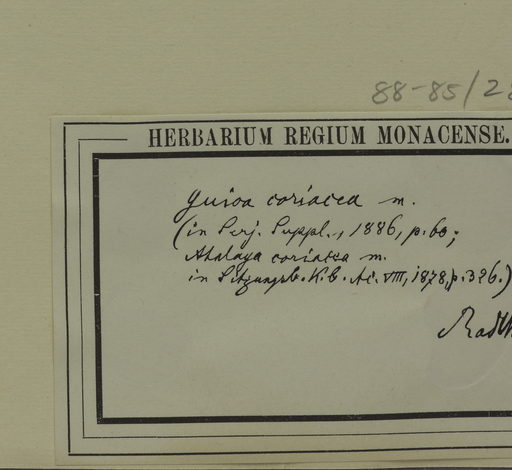 88-85/28
HERBARIUM REGIUM MONACENSE.
Guioa coriacea m.
(in Serj. Suppl., 1886, p. 60;
Atalaya coriacea m.
in Sitzungsb. K. b. Ac. VIII, 1878, p. 326.)
Radlk